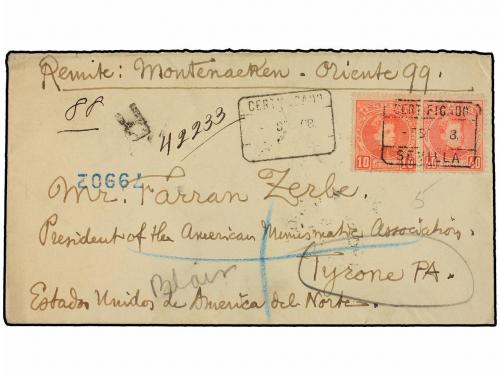 Remite: Montenaeken. Oriente 99.
88
R
42233
CERTIFICADO
CERTIFICADO
SEVILLA
10
10
79902
Mr. Farran Zerbe
5
President of the American Numismatic Association.
Tyrone PA.
Blair
Estados Unidos de America del Norte